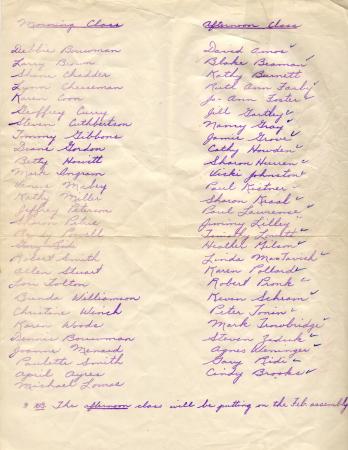 Morning Class
Debbie Bouwman
Larry Brown
Shane Chadder
Lynn Cheeseman
Karen Coon
Geoffrey Curry
Steven Cuthbertson
Tommy Gibbons
Diane Gordon
Betty Howitt
Mark Ingram
Kathy Miller
Jeffrey Peterson
Sharon
Powell
Robert Smith
Allen Stuart
Lori Tolton
Brenda Williamson
Christine Wench
Karen Woods
Dennis Bouwman
Joanne Menard
Paulette Smith
April Ayres
Michael Lomas
Afternoon Class
David Amos
Blake Beaman
Kathy Barnett
Ruth Ann
Jo-Ann Foster
Jill Gartley
Nancy Gray
Jamie Grove
Cathy Howden
Sharon
Vicki Johnston
Paul Kistner
Sharon
Paul Lawrence
Jimmy Lilley
Timothy
Heather Gibson
Linda MacTavish
Karen Pollard
Robert Pronk
Kevin Schram
Peter
Mark Trowbridge
Steven
Agnes Weninger
Gary Ridi
Cindy Brooks
The afternoon class will be putting on the Feb. assembly